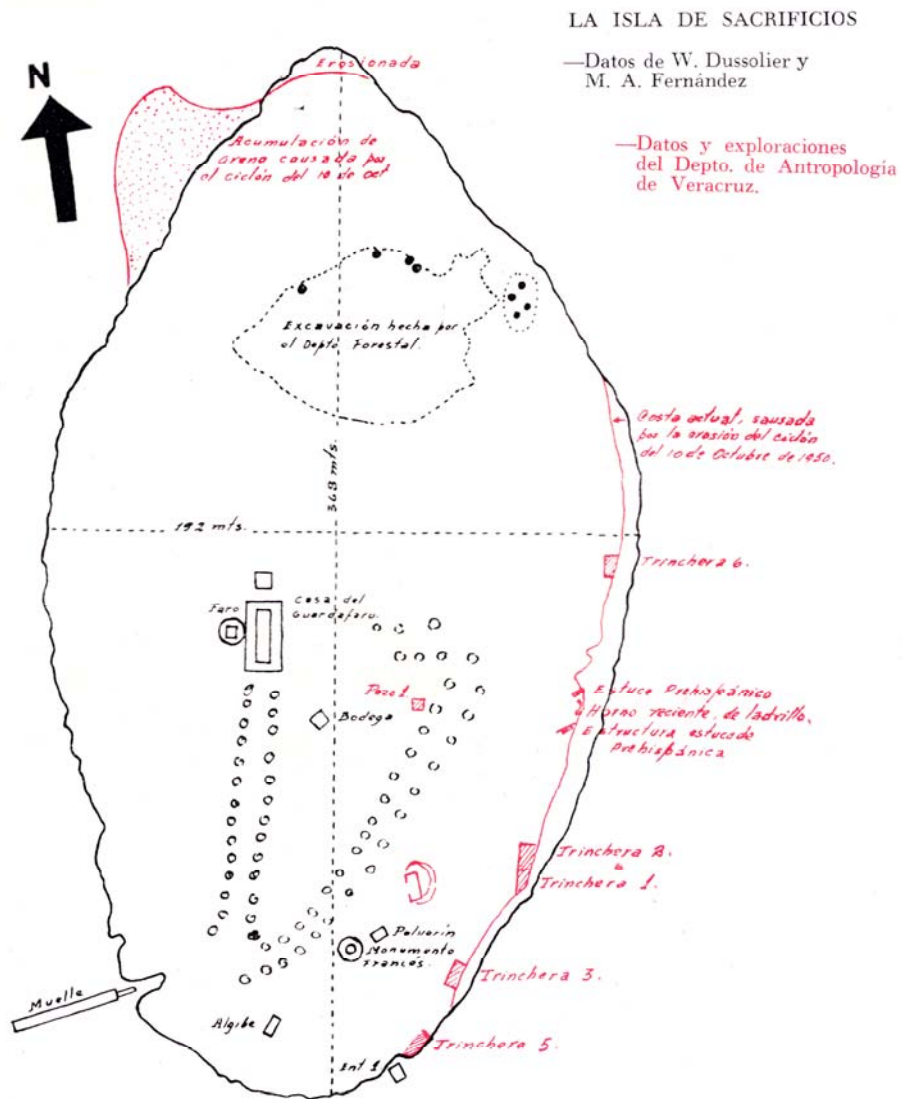 LA ISLA DE SACRIFICIOS
—Datos de W. Dussolier y
M. A. Fernández
—Datos y exploraciones
del Depto. de Antropología
de Veracruz.
N
Erosionada
Acumulación de
arena causada por
el ciclón del 10 de Oct
Excavación hecha por
el Depto Forestal.
Costa actual, causada
por la erosión del ciclón
del 10 de Octubre de 1950.
368 mts.
192 mts.
Trinchera 6.
Faro
Casa del
Guardafaro.
Pozo 1
Bodega
Estuco Prehispánico
Horno reciente, de ladrillo.
Estructura estucada
Prehispánica
Trinchera 2.
Trinchera 1.
Polvorín
Monumento
Francés.
Trinchera 3.
Muelle
Algibe
Trinchera 5.
Ent. 1